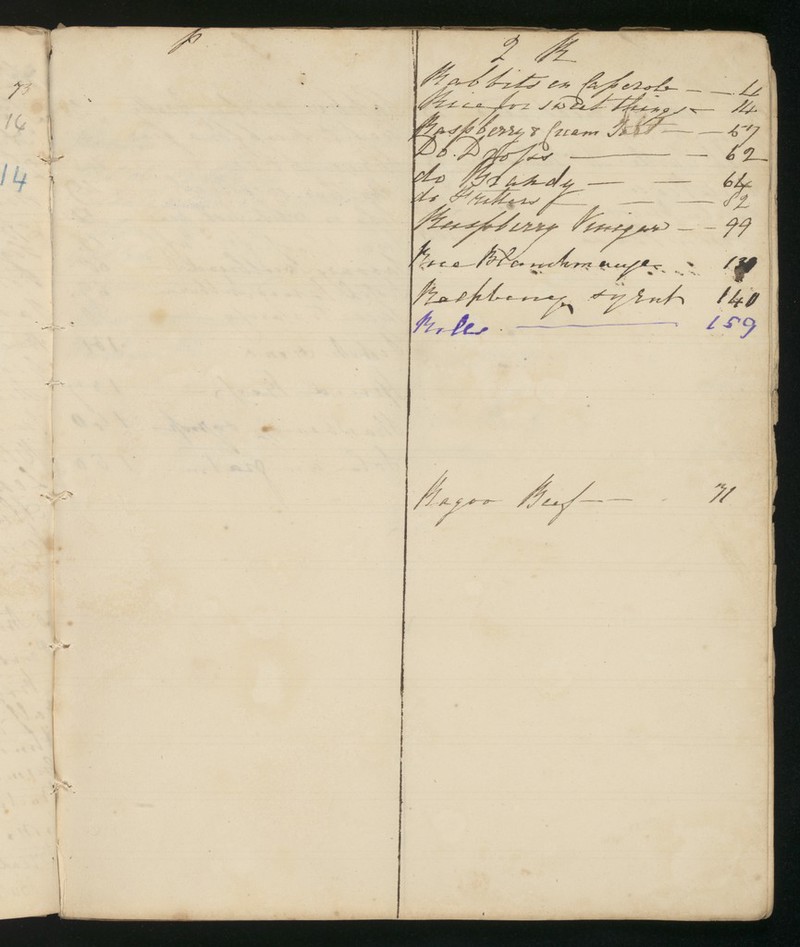 73
14
14
P
2 R
Rabbits en Casserole — — 4
Rice for sweet things — 14
Raspberry & Cream — — 57
Do. Drops — — 62
do Brandy — — 64
do Fritters — — — 82
Raspberry Vinigar — — 99
Rice Blanchmange 130
Raspberry syrub 140
Rolls — 159
Ragoo Beef — — 71